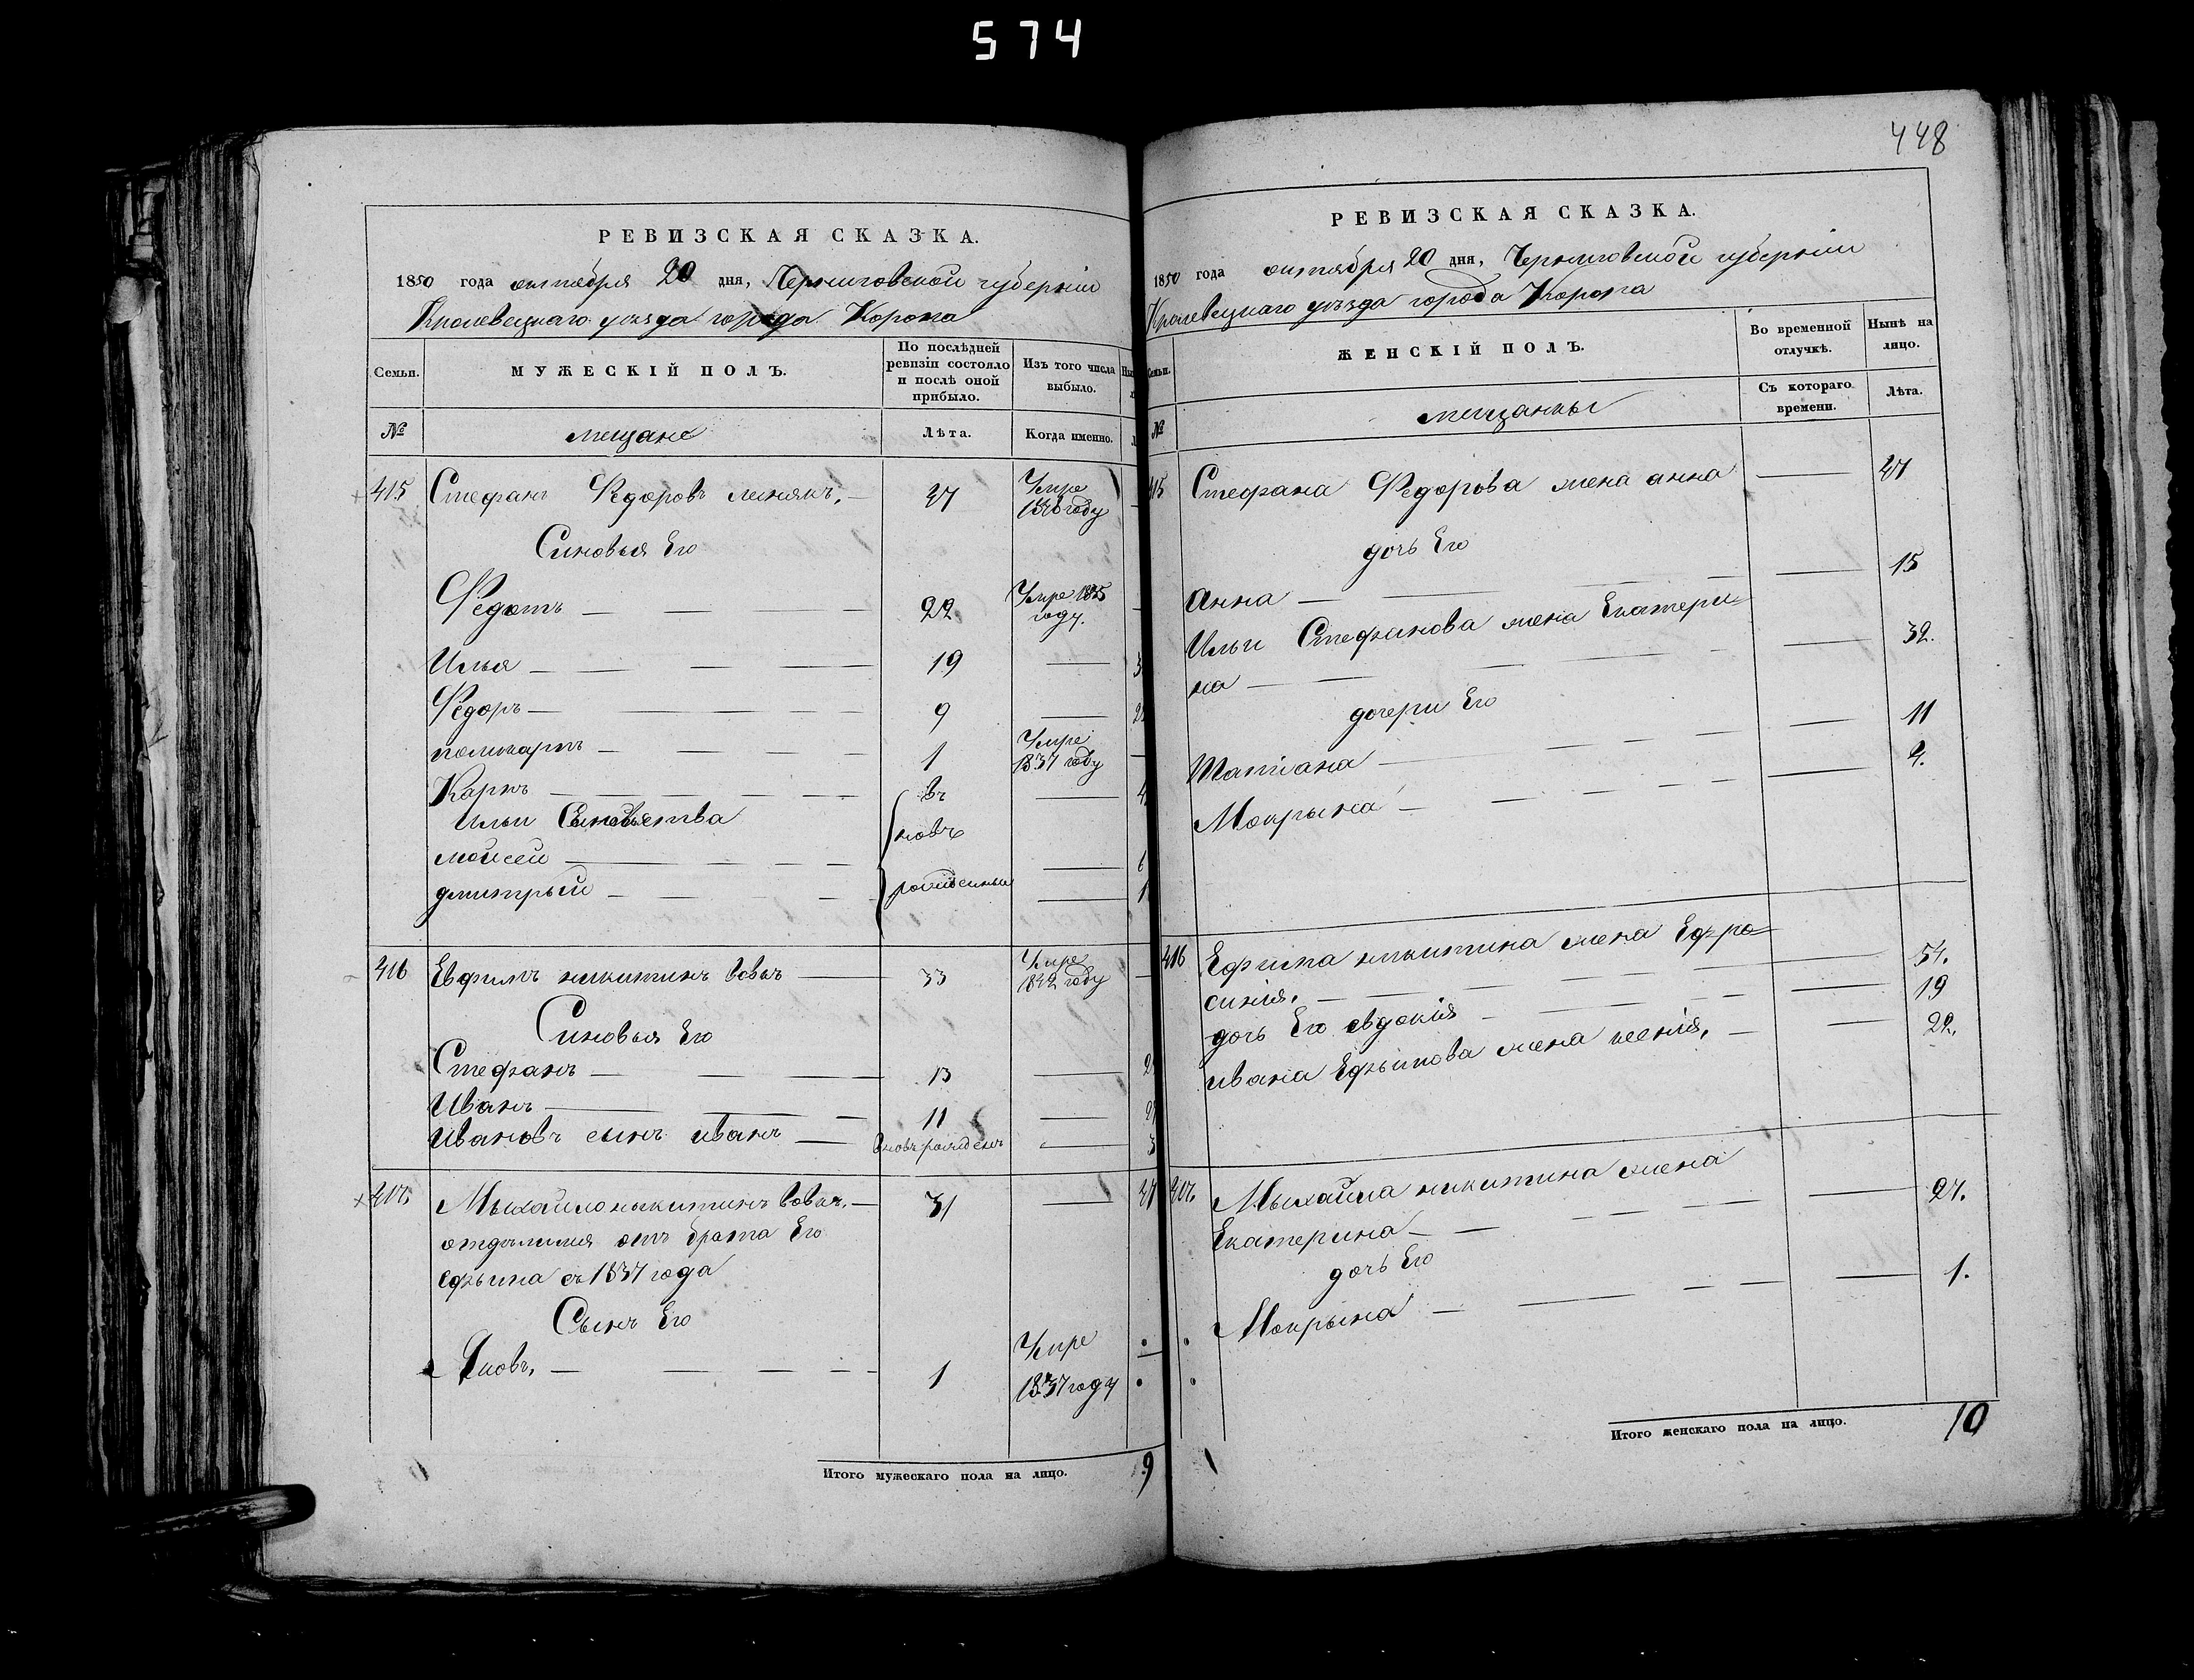 574
448
РЕВИЗСКАЯ СКАЗКА.
1850 года октября 20 дня, Черниговской губерніи
Кролевецкаго уезда города Коропа
Семьи.
МУЖЕСКІЙ ПОЛЪ.
По послѣдней ревизіи состояло и послѣ оной прибыло.
Изъ того числа выбыло.
№
мещане
Лѣта.
Когда именно.
415 Стефанъ Федоровъ
Умре
Синовья Его
Федотъ 22 Умре 1835 году.
Илья 19
Федоръ 9
поликарпъ 1 Умре 1837 году
Карпъ въ
Ильи
мойсей новь
дмитрый рожденные
416 Евфимъ никитинъ вовкъ 33 Умре 1842 году
Синовья Его
Стефанъ 13
Иванъ 11
Ивановъ сынъ иванъ вновь рожденъ
417. Мыхайло никитинъ вовкъ. 31
отделился отъ брата Его
Ефыма съ 1837 года
Сынъ Его
Яковъ. 1 Умре 1837 году
Итого мужескаго пола на лицо. 9
РЕВИЗСКАЯ СКАЗКА.
1850 года октября 20 дня, Черниговской губерніи
Кролевецкаго уъзда города Коропа
Семьи.
ЖЕНСКІЙ ПОЛЪ.
Во временной отлучкѣ.
Нынѣ на лицо.
№
мещанкы
Съ котораго времени.
Лѣта.
415 Стефана Федорова жена анна
дочь Его
анна 15
Ильи Стефанова жена Екатери-
на 32.
дочери Его
Татіана 11
Мокрына
416 Ефима никитина жена Ефро-
синія. 54.
дочь Его евдокія 19
ивана Ефымова жена ксенія. 22.
417. Мыхайла никитина жена
Екатерина 27.
дочь Его
Мокрына 1.
Итого женскаго пола на лицо. 10